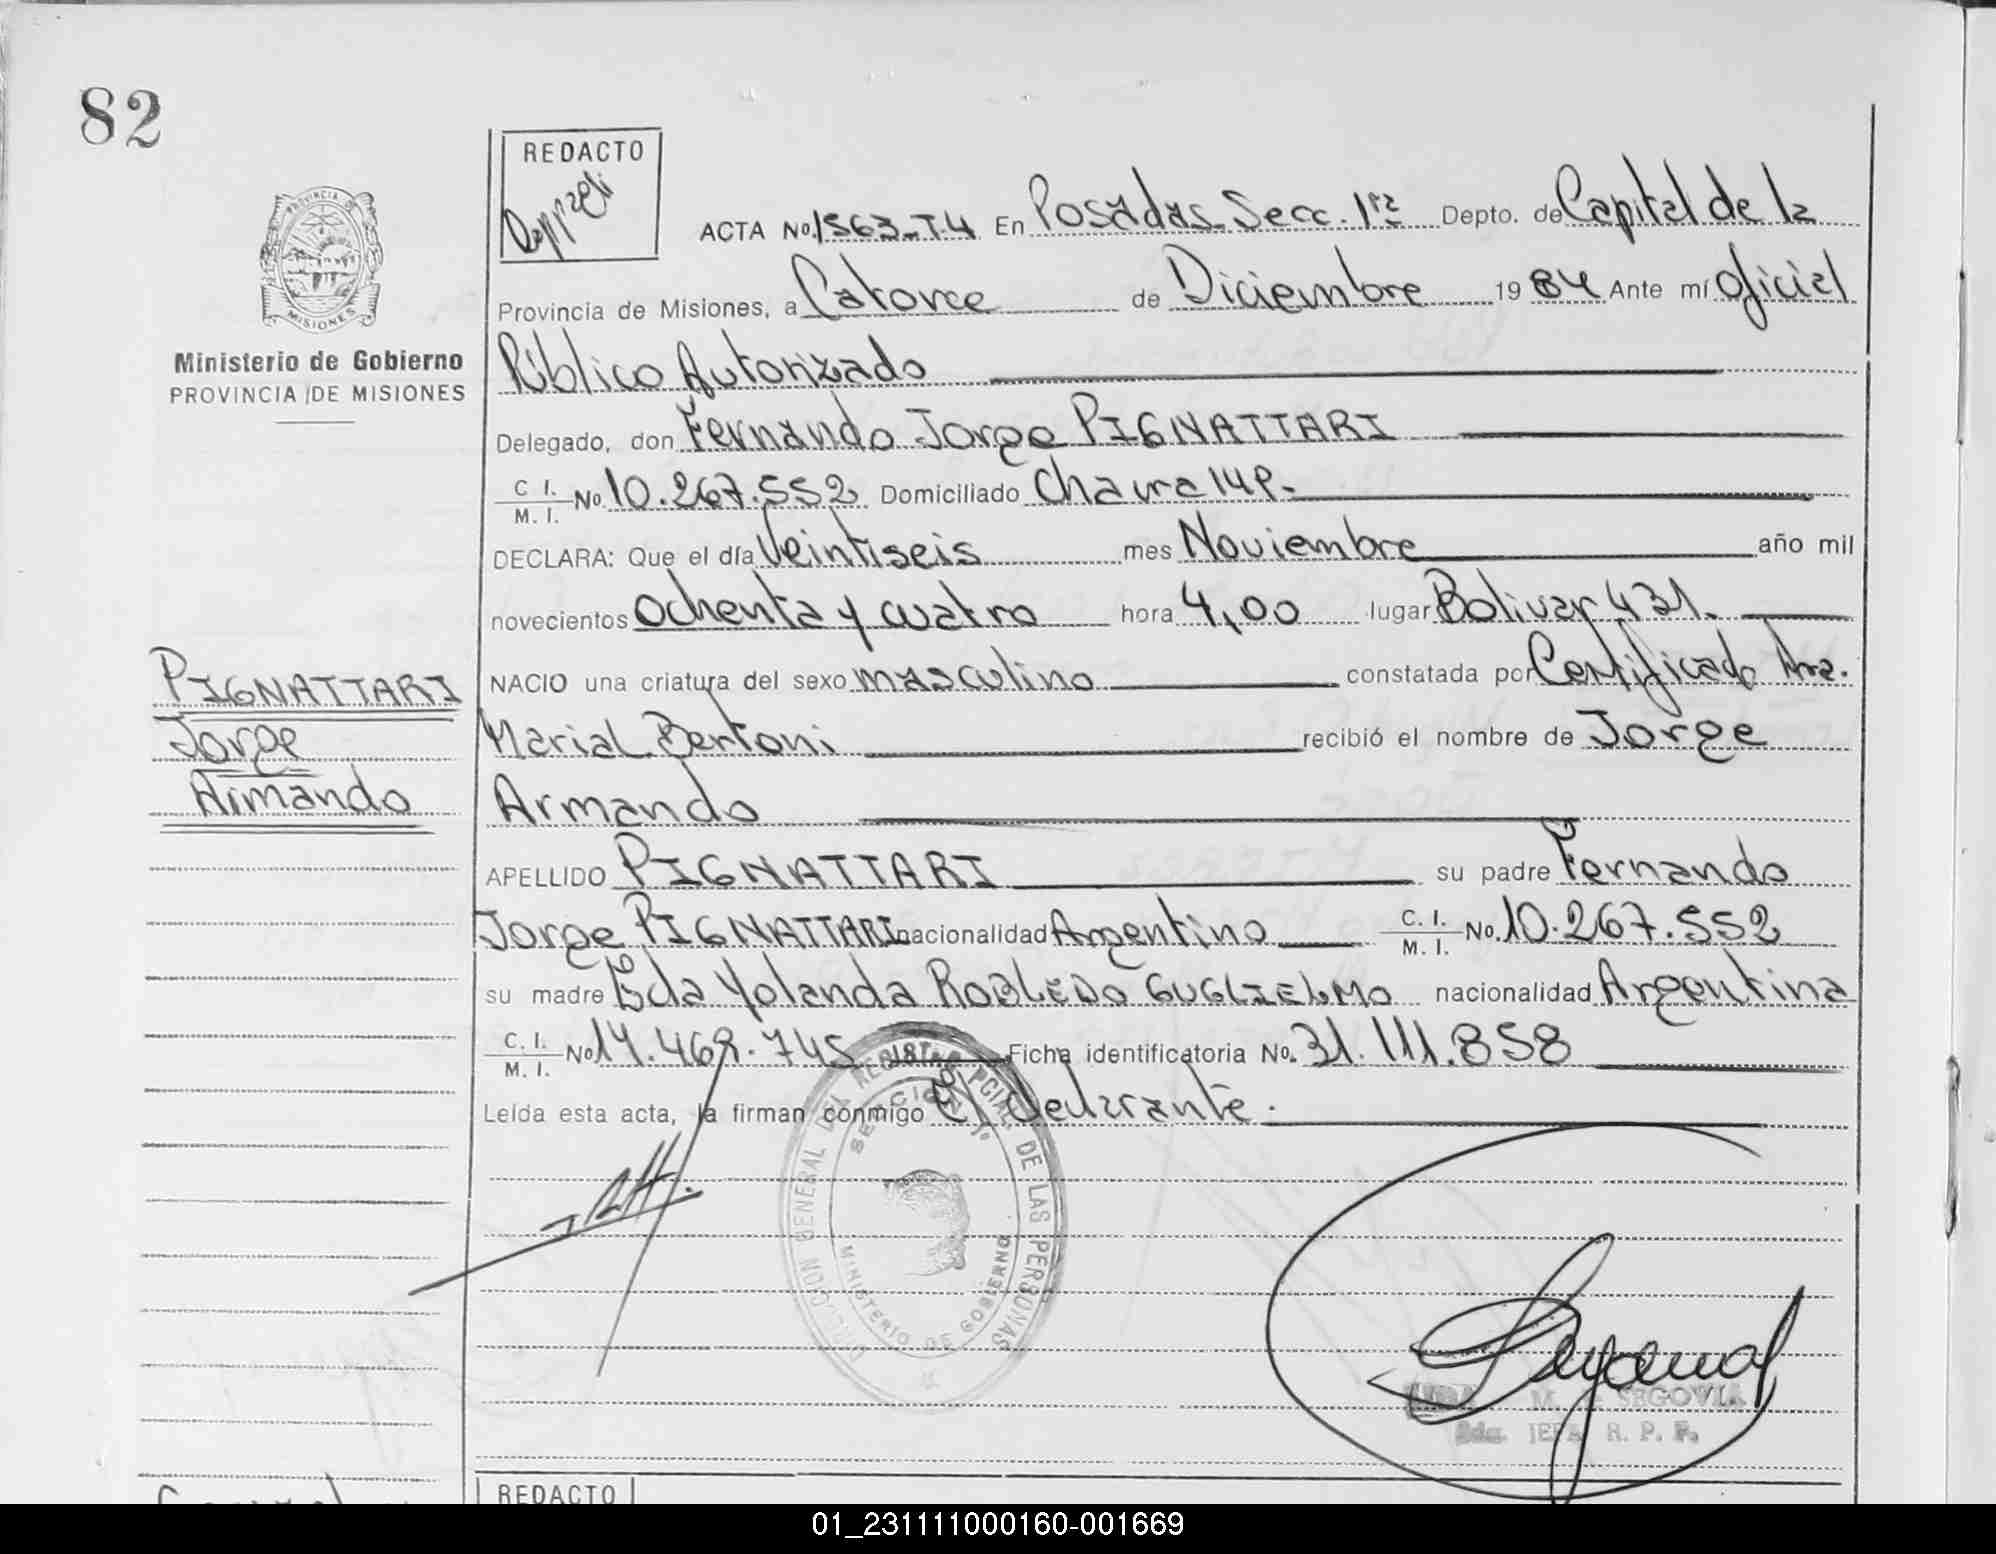 82
REDACTO
PROVINCIA DE
MISIONES
Ministerio de Gobierno
PROVINCIA DE MISIONES
ACTA No. 1563-T.4 En Posadas Secc. 1ra Depto. de Capital de la
Provincia de Misiones, a Catorce de Diciembre 1984 Ante mí Oficial
Público Autorizado
Delegado, don Fernando Jorge PIGNATTARI
C. I.
M. I. No 10.267.552 Domiciliado Chacra 148.
DECLARA: Que el día Veintiseis mes Noviembre año mil
novecientos Ochenta y cuatro hora 4,00 lugar Bolivar 431.
PIGNATTARI
Jorge
Armando
NACIO una criatura del sexo masculino constatada por Certificado Dra.
Maria L. Bertoni recibió el nombre de Jorge
Armando
APELLIDO PIGNATTARI su padre Fernando
Jorge PIGNATTARI nacionalidad Argentino C. I. M. I. No. 10.267.552
su madre Yolanda ROBLEDO GUGLIELMO nacionalidad Argentina
C. I. M. I. No 14.469.745 Ficha identificatoria No. 31.111.858
Leída esta acta, la firman conmigo El declarante.
DIRECCION GENERAL DEL REGISTRO PCIAL. DE LAS PERSONAS
SECCION 1°
MINISTERIO DE GOBIERNO
M. SEGOVIA
JEFA R. P. P.
REDACTO
01_231111000160-001669